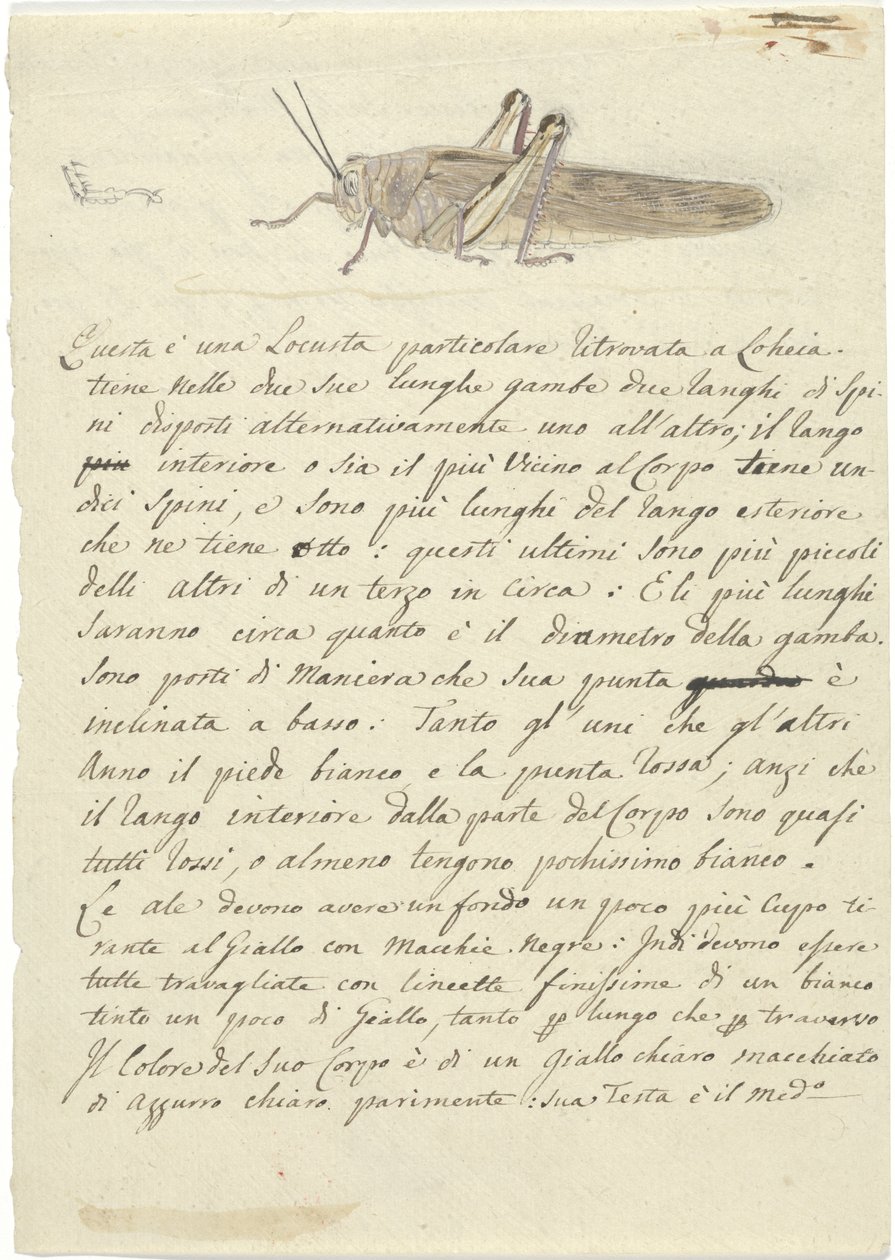 Questa è una Locusta particolare ritrovata a Loheia.
tiene nelle due sue lunghe gambe due ranghi di Spi-
ni disposti alternativamente uno all'altro; il rango
piu interiore o sia il più Vicino al Corpo tiene un-
dici Spini, e sono più lunghi del rango esteriore
che ne tiene otto : questi ultimi sono più piccoli
delli altri di un terzo in circa : E li più lunghi
saranno circa quanto è il diametro della gamba.
sono posti di Maniera che sua punta guarda è
inclinata a basso : Tanto gl'uni che gl'altri
Anno il piede bianco e la punta rossa ; anzi che
il rango interiore dalla parte del Corpo sono quasi
tutti rossi, o almeno tengono pochissimo bianco .
Le ale devono avere un fondo un poco più Cupo ti-
rante al Giallo con Macchie Negre : Indi devono essere
tutte travagliate con lineette finissime di un bianco
tinto un poco di Giallo, tanto p lungo che p traverso
Il Colore del suo Corpo è di un Giallo chiaro macchiato
di Azzurro chiaro parimente : sua Testa è il medo